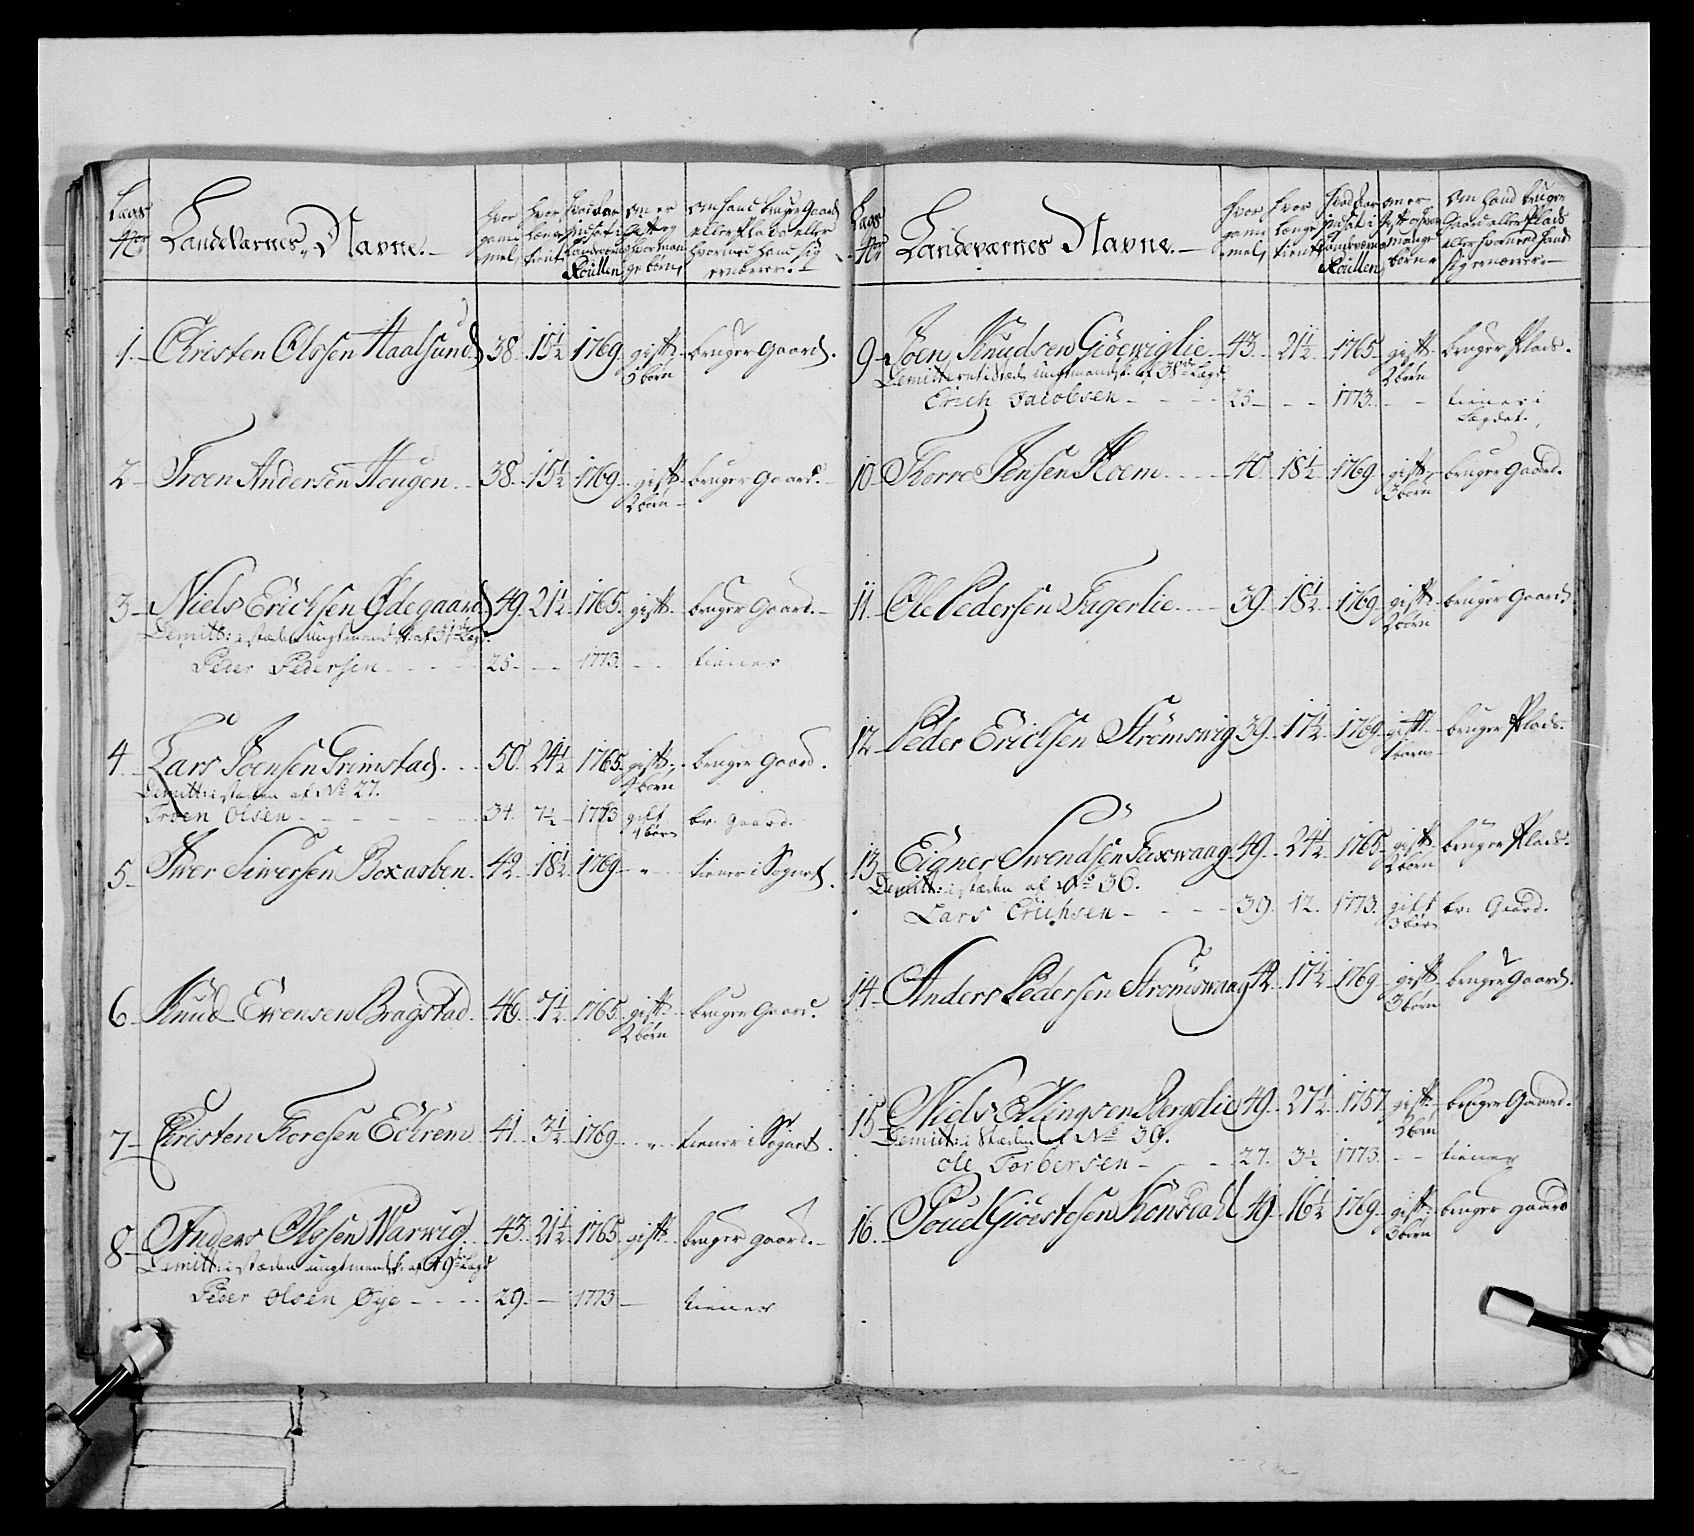 Lags No
Landevarnes Navne.
Hvor gammel
Hvor længe tient
Hvad Aar indsat i Landevarns Roullen
Om er Gift og hvor mange børn
Om hand bruger Gaard eller Plads eller hvormed hand sig ernærer.
1. Christen Olssen Haalsund 38. 15½ 1769 gift bruger Gaard.
5 børn
2 Troen Andersen Hougen 38. 15½ 1769 gift bruger Gaard.
2 børn
3 Niels Erichsen Ødegaard 49. 21½ 1765. gift bruger Gaard.
Demitt: i stæden ungtmandsk: af 31te Lægd.
Peder Pedersen 25 1773. tiener
4. Lars Joensen Grimstad. 50. 24½ 1765. gift bruger Gaard.
4 børn
Demitt: i stæden af No 27.
Troen Olsen 34. 7½ 1773 gift br. Gaard.
1 børn
5 Iver Siversen Boxasben 42. 18½ 1769 " tiener i Sognet.
6 Knud Evensen Bragstad. 46. 7½ 1765 gift bruger Gaard.
2 børn
7 Christen Toresen Echrem 41. 3½ 1769 " tiener i Sognet.
8 Anders Olssen Warwig. 43. 21½ 1765 gift bruger gaard.
Demitt: i stæden ungtmandsk: af 49de Lægd
Peder Olsen Øye 29. 1773 tiener
Lags No
Landevarnes Navne.
Hvor gammel
Hvor længe tient
Hvad Aar indsat i Landeverns Roullen
Om er Gift og hvor mange børn
Om hand bruger Gaard eller Plads eller hvormed hand sig ernærer.
9 Joen Knudsen Giøewiglie 43. 21½ 1765 gift bruger Plads.
2 børn
Demitteret i Stæd ungtmandsk: af 38de Lægd.
Erich Jacobsen 25 1773. tiener i
Lægdet.
10 Torre Jensen Hoem 40. 18½ 1769. gift bruger Gaard.
3 børn
11. Ole Pedersen Fagerlie. 39. 18½ 1769 gift bruger Gaard
2 børn
12 Peder Erichsen Strømswig 39. 17½ 1769 gift bruger Plads.
1 børn
13 Eigner Svendsen Faxwaag 49. 24½ 1765 gift bruger Plads.
2 børn
Demitt: i stæden af No 36.
Lars Erichsen 39. 12. 1773. gift br. Gaard.
3 børn
14 Anders Pedersen Strømswaag 42. 17½ 1769 gift bruger Gaard.
3 børn
15 Niels Ellingsen Bergslie 49. 27½ 1757 gift bruger Gaard.
2 børn
Demitt: i Stæden af No 39.
Ole Torbersen 27. 3½ 1773. tiener
16. Poud 49 16½ 1769 gift bruger gaard
3 børn